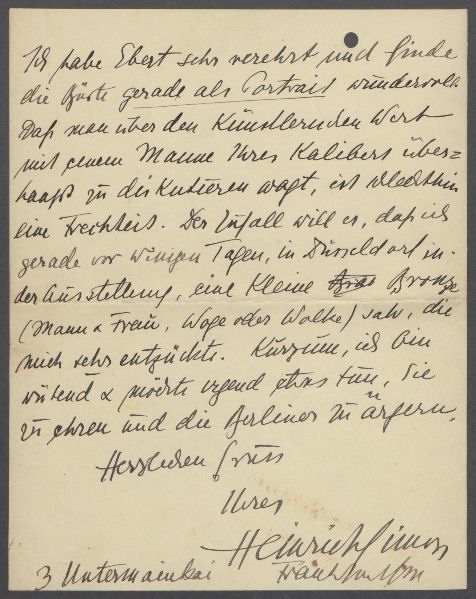 Ich habe Ebert sehr verehrt und finde
die Büste gerade als Portrait wundervoll.
Daß man über den Künstlerischen Wert
mit einem Manne Ihres Kalibers über=
haupt zu diskutieren wagt, ist schlechthin
eine Frechheit. Der Zufall will es, daß ich
gerade vor wenigen Tagen, in Düsseldorf in
der Ausstellung, eine kleine Bronze
(Mann & Frau, Woge oder Wolke) sah, die
mich sehr entzückte. Kurzum, ich bin
wütend & möchte irgend etwas tun, Sie
zu ehren und die Berliner zu ärgern.
Herzlichen Gruss
Ihres
Heinrich Simon
3 Untermainkai Frankfurt/M